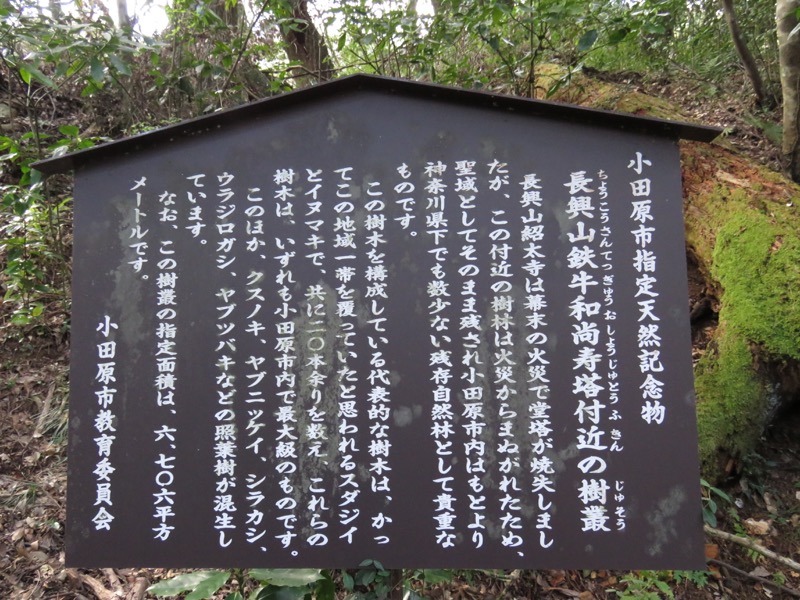 小田原市指定天然記念物
ちょうこうさんてつぎゅうおしょうじゅとうふきん じゅそう
長興山鉄牛和尚寿塔付近の樹叢
長興山紹太寺は幕末の火災で堂塔が焼失しまし
たが、この付近の樹林は火災からまぬがれたため、
聖域としてそのまま残され小田原市内はもとより
神奈川県下でも数少ない残存自然林として貴重な
ものです。
この樹木を構成している代表的な樹木は、かっ
てこの地域一帯を覆っていたと思われるスダジイ
とイヌマキで、共に二〇本余りを数え、これらの
樹木は、いずれも小田原市内で最大級のものです。
このほか、クスノキ、ヤブニッケイ、シラカシ、
ウラジロガシ、ヤブツバキなどの照葉樹が混生し
ています。
なお、この樹叢の指定面積は、六、七〇六平方
メートルです。
小田原市教育委員会